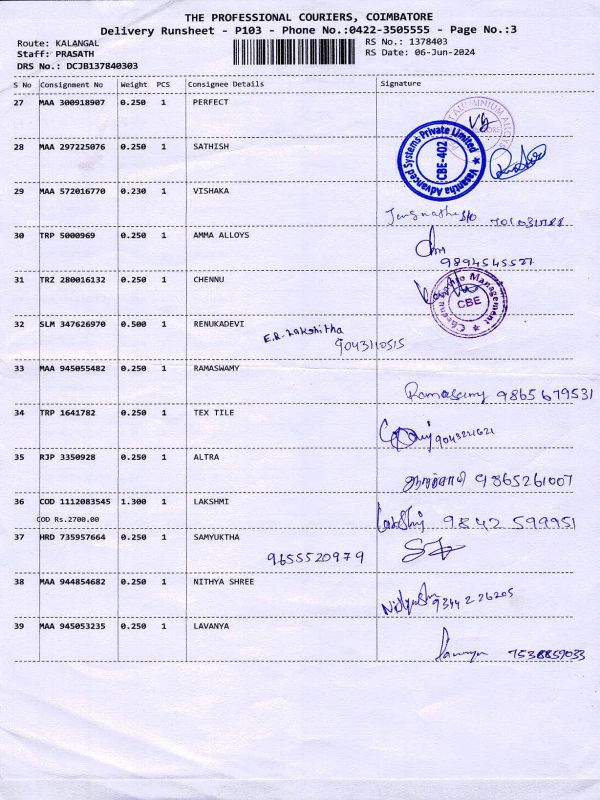 THE PROFESSIONAL COURIERS, COIMBATORE
Delivery Runsheet - P103 - Phone No.:0422-3505555 - Page No.:3
Route: KALANGAL
Staff: PRASATH
DRS No.: DCJB137840303
RS No.: 1378403
RS Date: 06-Jun-2024
S No Consignment No Weight PCS Consignee Details Signature
27 MAA 300918907 0.250 1 PERFECT
28 MAA 297225076 0.250 1 SATHISH
Vasantha Advanced Systems Private Limited ★
CBE-402
29 MAA 572016770 0.230 1 VISHAKA
30 TRP 5000969 0.250 1 AMMA ALLOYS
9894545527
31 TRZ 280016132 0.250 1 CHENNU
Management
CBE
32 SLM 347626970 0.500 1 RENUKADEVI
E.R. Lakshitha
9043110515
33 MAA 945055482 0.250 1 RAMASWAMY
Ramasamy 9865679531
34 TRP 1641782 0.250 1 TEX TILE
35 RJP 3350928 0.250 1 ALTRA
9865261007
36 COD 1112083545 1.300 1 LAKSHMI
COD Rs.2700.00
9842 599951
37 HRD 735957664 0.250 1 SAMYUKTHA
9655520979
38 MAA 944854682 0.250 1 NITHYA SHREE
9344226205
39 MAA 945053235 0.250 1 LAVANYA
7538859033